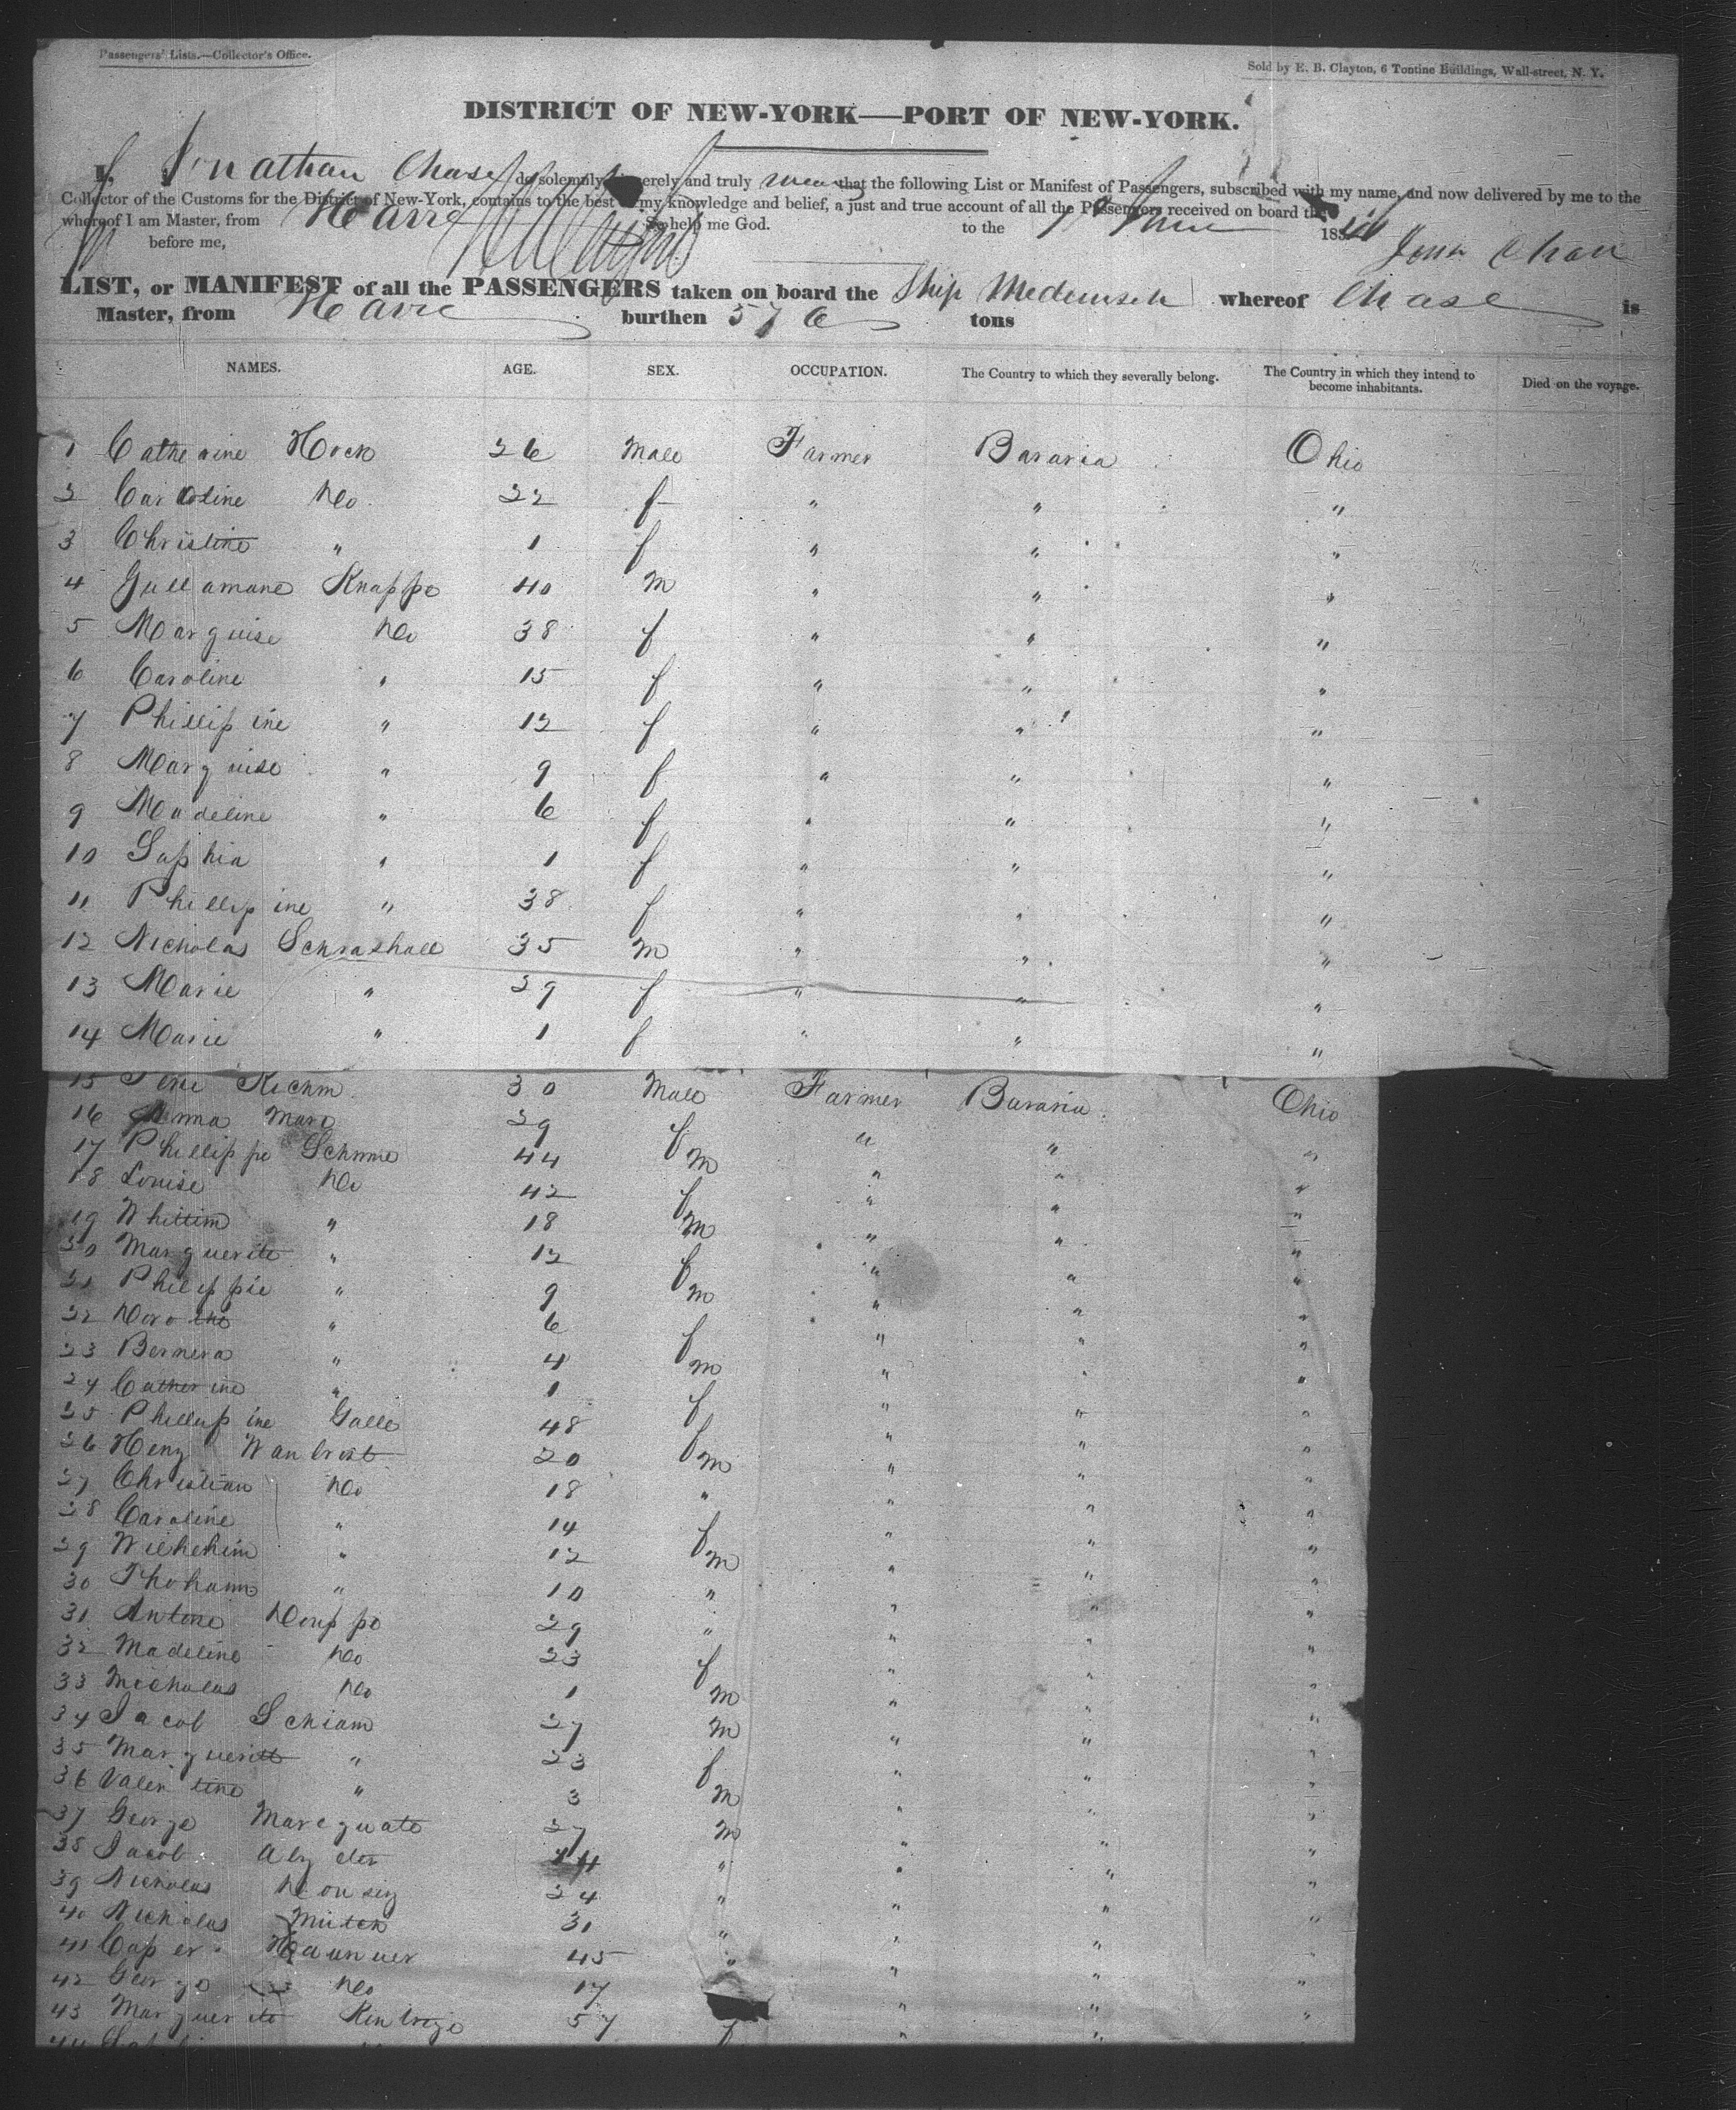 Passengers' Lists.—Collector's Office.
Sold by E. B. Clayton, 6 Tontine Buildings, Wall-street, N. Y.
DISTRICT OF NEW-YORK—PORT OF NEW-YORK.
I, Jonathan Chase do solemnly, sincerely and truly swear that the following List or Manifest of Passengers, subscribed with my name, and now delivered by me to the
Collector of the Customs for the District of New-York, contains to the best of my knowledge and belief, a just and true account of all the Passengers received on board the
whereof I am Master, from Havre So help me God.
to the June 183
before me,
Jona Chase
LIST, or MANIFEST of all the PASSENGERS taken on board the Ship Medemseh whereof Chase is
Master, from Havre burthen 576 tons
NAMES. AGE. SEX. OCCUPATION. The Country to which they severally belong. The Country in which they intend to become inhabitants. Died on the voyage.
1 Catherine Hock 26 Male Farmer Bavaria Ohio
2 Caroline Do 22 f " " "
3 Christine " 1 f " " "
4 Gullamane Knappe 40 m " " "
5 Marguise Do 38 f " " "
6 Caroline " 15 f " " "
7 Phillipine " 12 f " " "
8 Marguise " 9 f " " "
9 Madeline " 6 f " " "
10 Saphia " 1 f " " "
11 Phillipine " 38 f " " "
12 Nicholas Schrashall 35 m " " "
13 Marie " 29 f " " "
14 Marie " 1 f " " "
15 Kichm 30 Male Farmer Bavaria Ohio
16 Anna Mara 29 f " " "
17 Phillippe Schnme 44 m " " "
18 Louise Do 42 f " " "
19 Whittim " 18 m " " "
20 Marguerite " 12 f " " "
21 Philippie " 9 m " " "
22 Dorothe " 6 f " " "
23 Bernera " 4 m " " "
24 Catherine " 1 f " " "
25 Phillipine Galle 48 f " " "
26 Heny Wanbrist 20 m " " "
27 Christian Do 18 " " " "
28 Caroline " 14 f " " "
29 Wilhehim " 12 m " " "
30 Thohann " 10 " " " "
31 Antone Douppe 29 " " " "
32 Madeline Do 23 f " " "
33 Micholas Do 1 m " " "
34 Jacob Schiam 27 m " " "
35 Marguerite " 23 f " " "
36 Valentine " 3 m " " "
37 George Marequate 27 m " " "
38 Jacob " " " "
39 Nicholas 24 " " " "
40 Nicholas Mutch 31 " " " "
41 Casper Haunuer 45 " " " "
42 George Do 17 " " "
43 Marguerite Kinbrige 57 f " " "
44